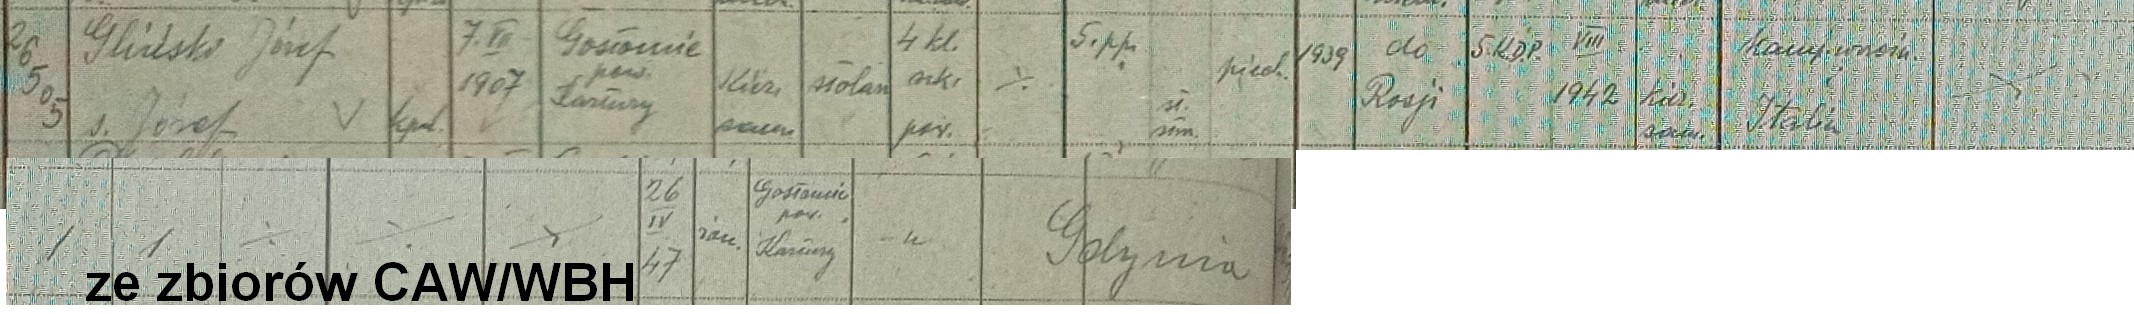 26505
Gliński Józef
s. Józef V
kpr.
7. VII
1907
Gostomie
pow.
Kartuzy
Kier.
sam.
stolarz
4 kl.
szk.
pow.
÷
5. pp.
st.
piech.
1939
do
Rosji
5.K.D.P.
VIII
1942
kier.
sam.
Kamp. wrześn.
Italia
26
IV
47
Gostomie
pow.
Kartuzy
Gdynia
ze zbiorów CAW/WBH